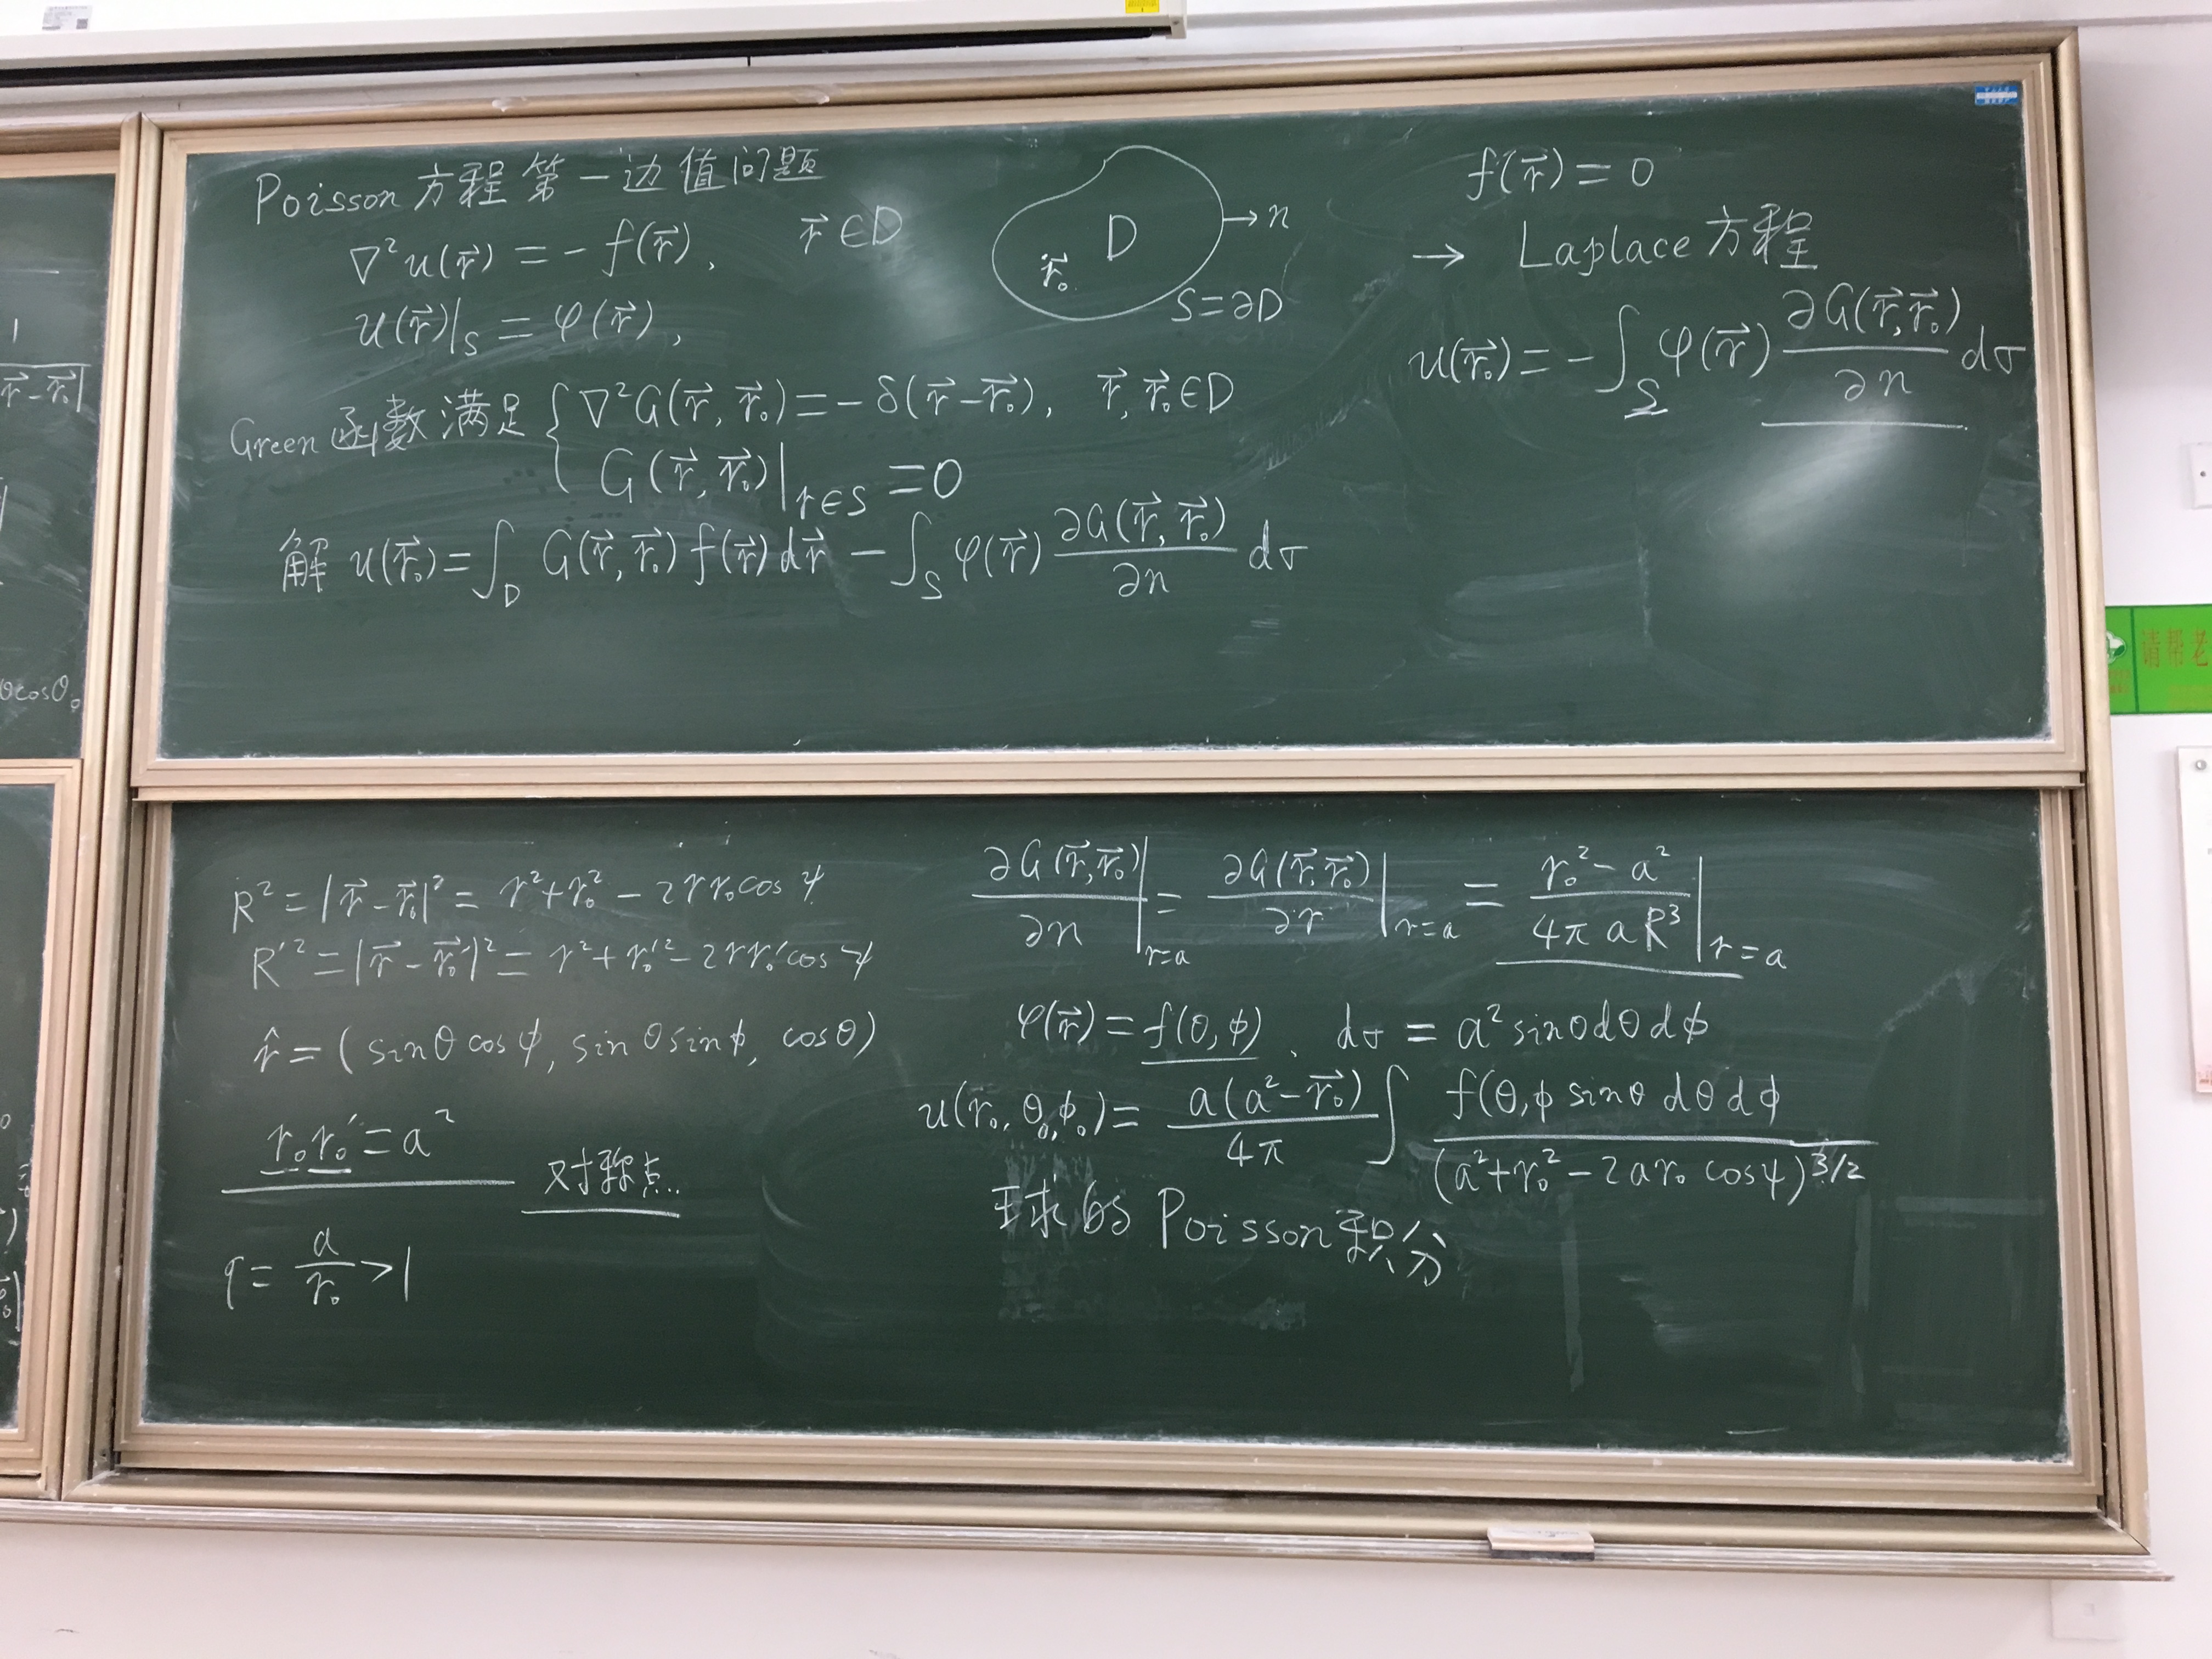 Poisson 方程第一边值问题
∇²u(r⃗) = -f(r⃗), r⃗∈D
u(r⃗)|_S = φ(r⃗),
D
r⃗₀
→ n
S=∂D
Green 函数满足 { ∇²G(r⃗, r⃗₀) = -δ(r⃗-r⃗₀), r⃗, r⃗₀∈D
G(r⃗, r⃗₀)|_{r∈S} = 0
解 u(r⃗₀) = ∫_D G(r⃗, r⃗₀) f(r⃗) dr⃗ - ∫_S φ(r⃗) ∂G(r⃗, r⃗₀)/∂n dσ
f(r⃗) = 0
→ Laplace 方程
u(r⃗₀) = -∫_S φ(r⃗) ∂G(r⃗, r⃗₀)/∂n dσ
R² = |r⃗-r⃗₀|² = r²+r₀² - 2rr₀cosψ
R'² = |r⃗-r⃗₀'|² = r²+r₀'² - 2rr₀'cosψ
r̂ = (sinθcosϕ, sinθsinϕ, cosθ)
r₀r₀' = a² 对称点..
q = a/r₀ > 1
∂G(r⃗, r⃗₀)/∂n|_{r=a} = ∂G(r⃗, r⃗₀)/∂r|_{r=a} = (r₀²-a²)/(4πaR³)|_{r=a}
φ(r⃗) = f(θ,ϕ), dσ = a²sinθdθdϕ
u(r₀, θ₀, ϕ₀) = a(a²-r⃗₀)/4π ∫ f(θ,ϕ sinθ dθdϕ/(a²+r₀²-2ar₀cosψ)^{3/2}
球的 Poisson 积分
r⃗-r⃗₀|
θcosθ₀
请帮老